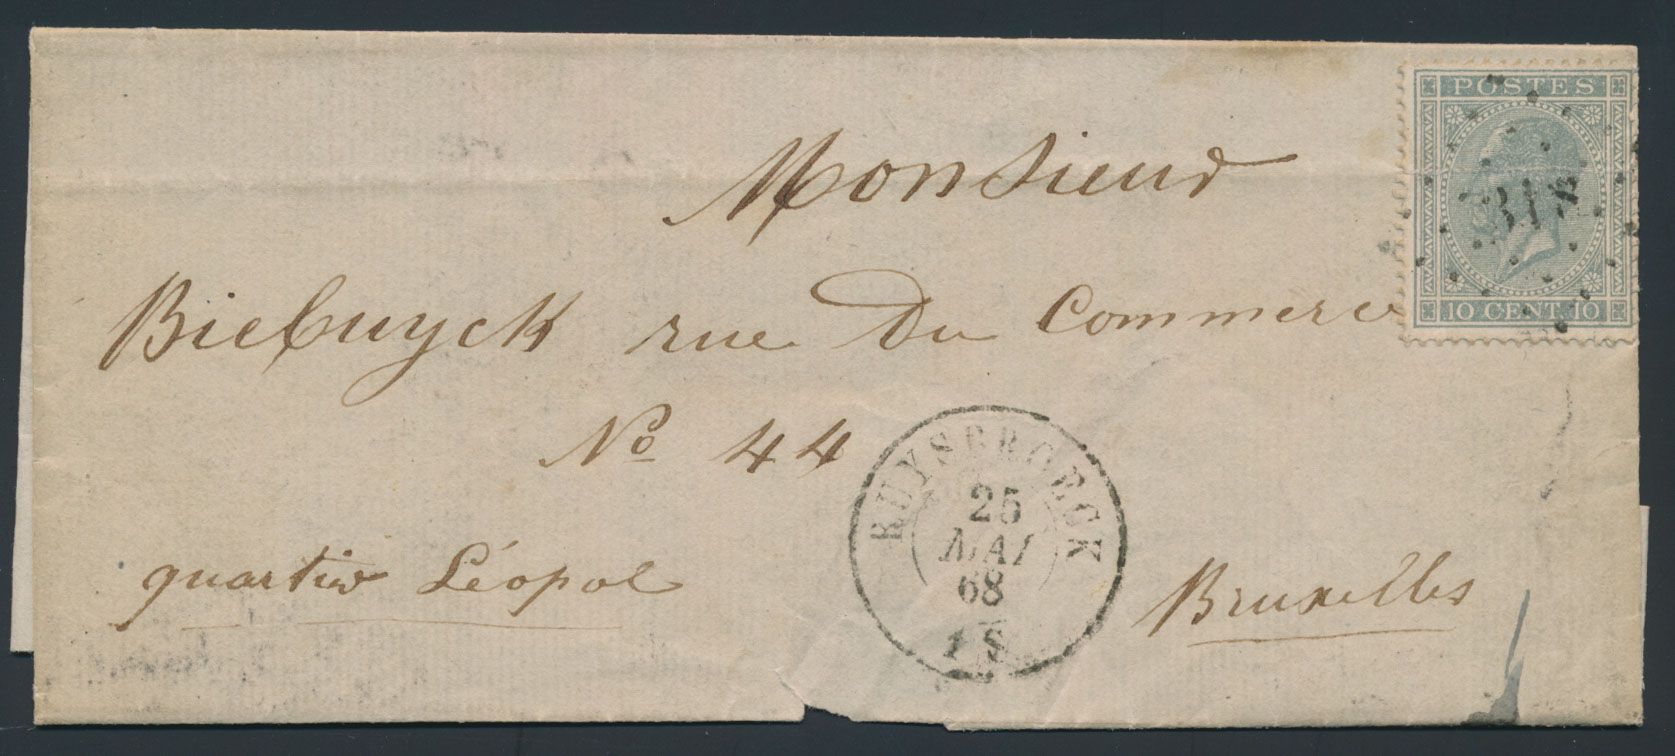 POSTES
318
10 CENT. 10
Monsieur
Biebuyck rue du Commerce
No 44
RUYSBROECK
25
MAI
68
1 S
quartier Léopol
Bruxelles